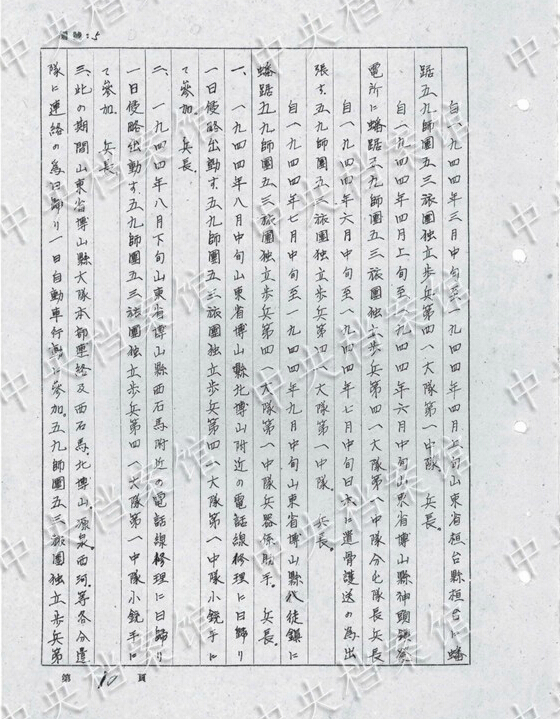 自一九四四年三月中旬至一九四四年四月上旬山東省桓台縣桓台に蟠
踞五九師團五三旅團独立歩兵第四一大隊第一中隊　兵長。
自一九四四年四月上旬至一九四四年六月中旬山東省博山縣神頭鎮発
電所に蟠踞五九師團五三旅團独立歩兵第四一大隊第一中隊分屯隊長兵長
自一九四四年六月中旬至一九四四年七月中旬日本に遺骨護送の為出
張す。五九師團五三旅團独立歩兵第四一大隊第一中隊。兵長。
自一九四四年七月中旬至一九四四年九月中旬山東省博山縣八徒鎮に
蟠踞五九師團五三旅團独立歩兵第四一大隊第一中隊兵器係助手。兵長。
一、一九四四年八月中旬山東省博山縣北博山附近の電話線修理に日帰り
一日侵略出動す。五九師團五三旅團独立歩兵第四一大隊第一中隊小銃手に
て参加。　兵長
二、一九四四年八月下旬山東省博山縣西石馬附近の電話線修理に日帰り
一日侵略出動す。五九師團五三旅團独立歩兵第四一大隊第一中隊小銃手に
て参加。　兵長
三、此の期間山東省博山縣大隊本部連絡及西石馬、北博山、源泉、西河、等各分遣
隊に連絡の為日帰り一日自動車行動に参加。五九師團五三旅團独立歩兵第
第 10 頁
中央档案馆